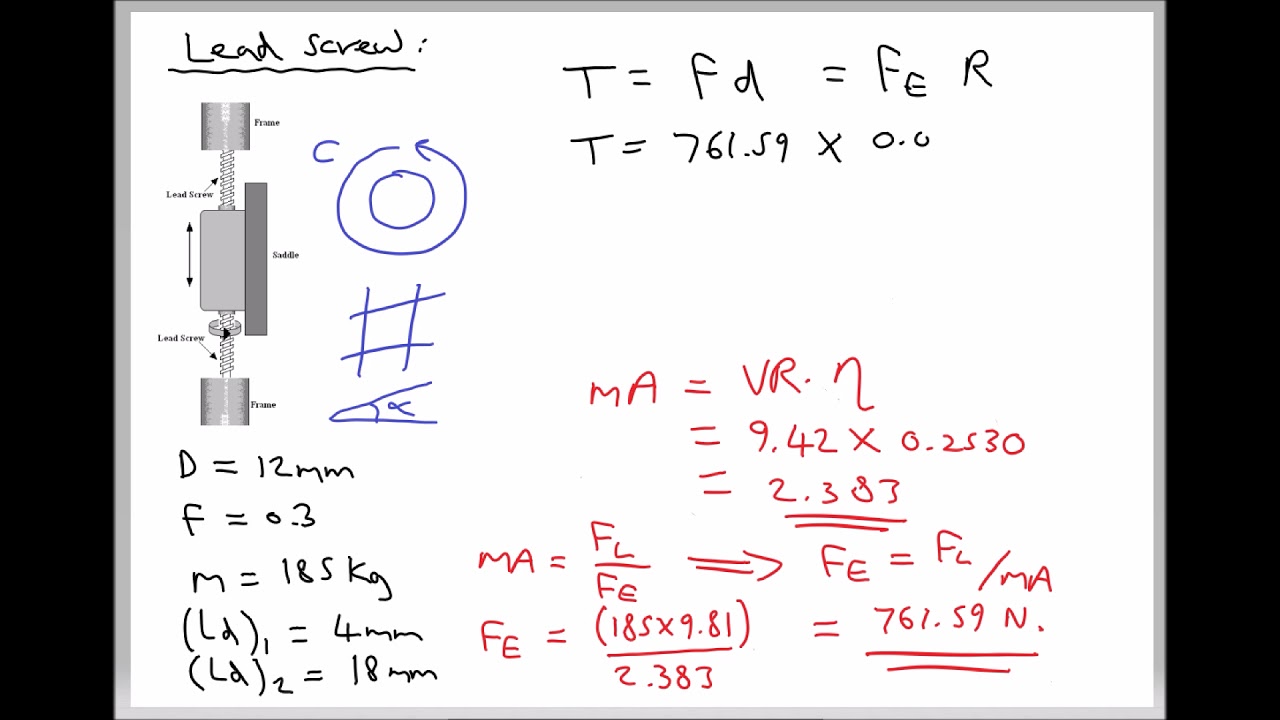 Lead screw:
Frame
Lead Screw
C
Saddle
Lead Screw
Frame
α
D = 12mm
f = 0.3
m = 185 Kg
(Ld)₁ = 4mm
(Ld)₂ = 18mm
T = Fd = F_E R
T = 761.59 × 0.0
MA = VR. η
= 9.42 × 0.2530
= 2.383
MA = F_L / F_E ⟹ F_E = F_L / MA
F_E = (185×9.81) / 2.383 = 761.59 N.